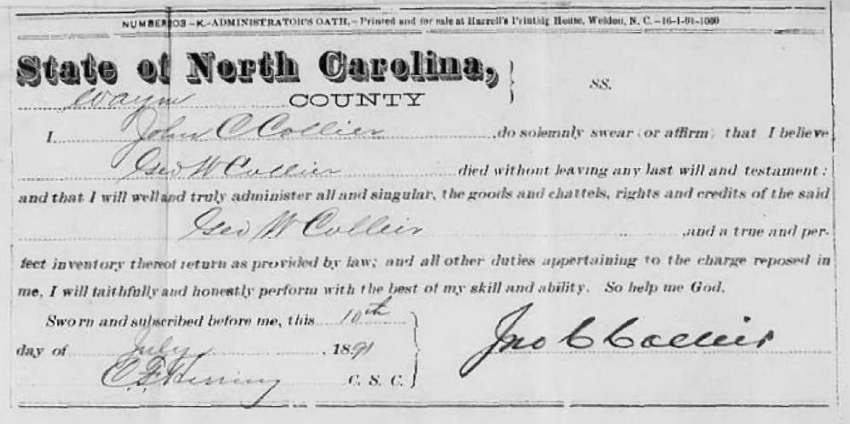 NUMBER 203 -K-ADMINISTRATOR'S OATH,- Printed and for sale at Harrell's Printing House, Weldon, N. C.-16-1-91-1000
State of North Carolina,
Wayne COUNTY } ss.
I John C Collier ,do solemnly swear (or affirm) that I believe
Geo W Collier died without leaving any last will and testament:
and that I will well and truly administer all and singular, the goods and chattels, rights and credits of the said
Geo W Collier ,and a true and per-
fect inventory thereof return as provided by law; and all other duties appertaining to the charge reposed in
me, I will faithfully and honestly perform with the best of my skill and ability. So help me God.
Sworn and subscribed before me, this 10th
day of July , 1891 } Jno C Collier
C. F. Herring C. S. C.